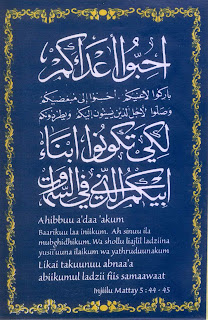 احبّوا أعداءكم
باركوا لاعنيكم احسنوا إلى مبغضيكم
وصلّوا لأجل الذين يسيئون إليكم ويطردونكم
لكي تكونوا أبناء
أبيكم الذي في السماوات
Ahibbuu a'daa 'akum
Baarikuu laa iniikum. Ah sinuu ila
mubghidhikum. Wa shollu liajlil ladziina
yusii'uuna ilaikum wa yathruduunakum
Likai takuunuu abnaa'a
abiikumul ladzii fiis samaawaat
Injiilu Mattay 5 : 44 - 45